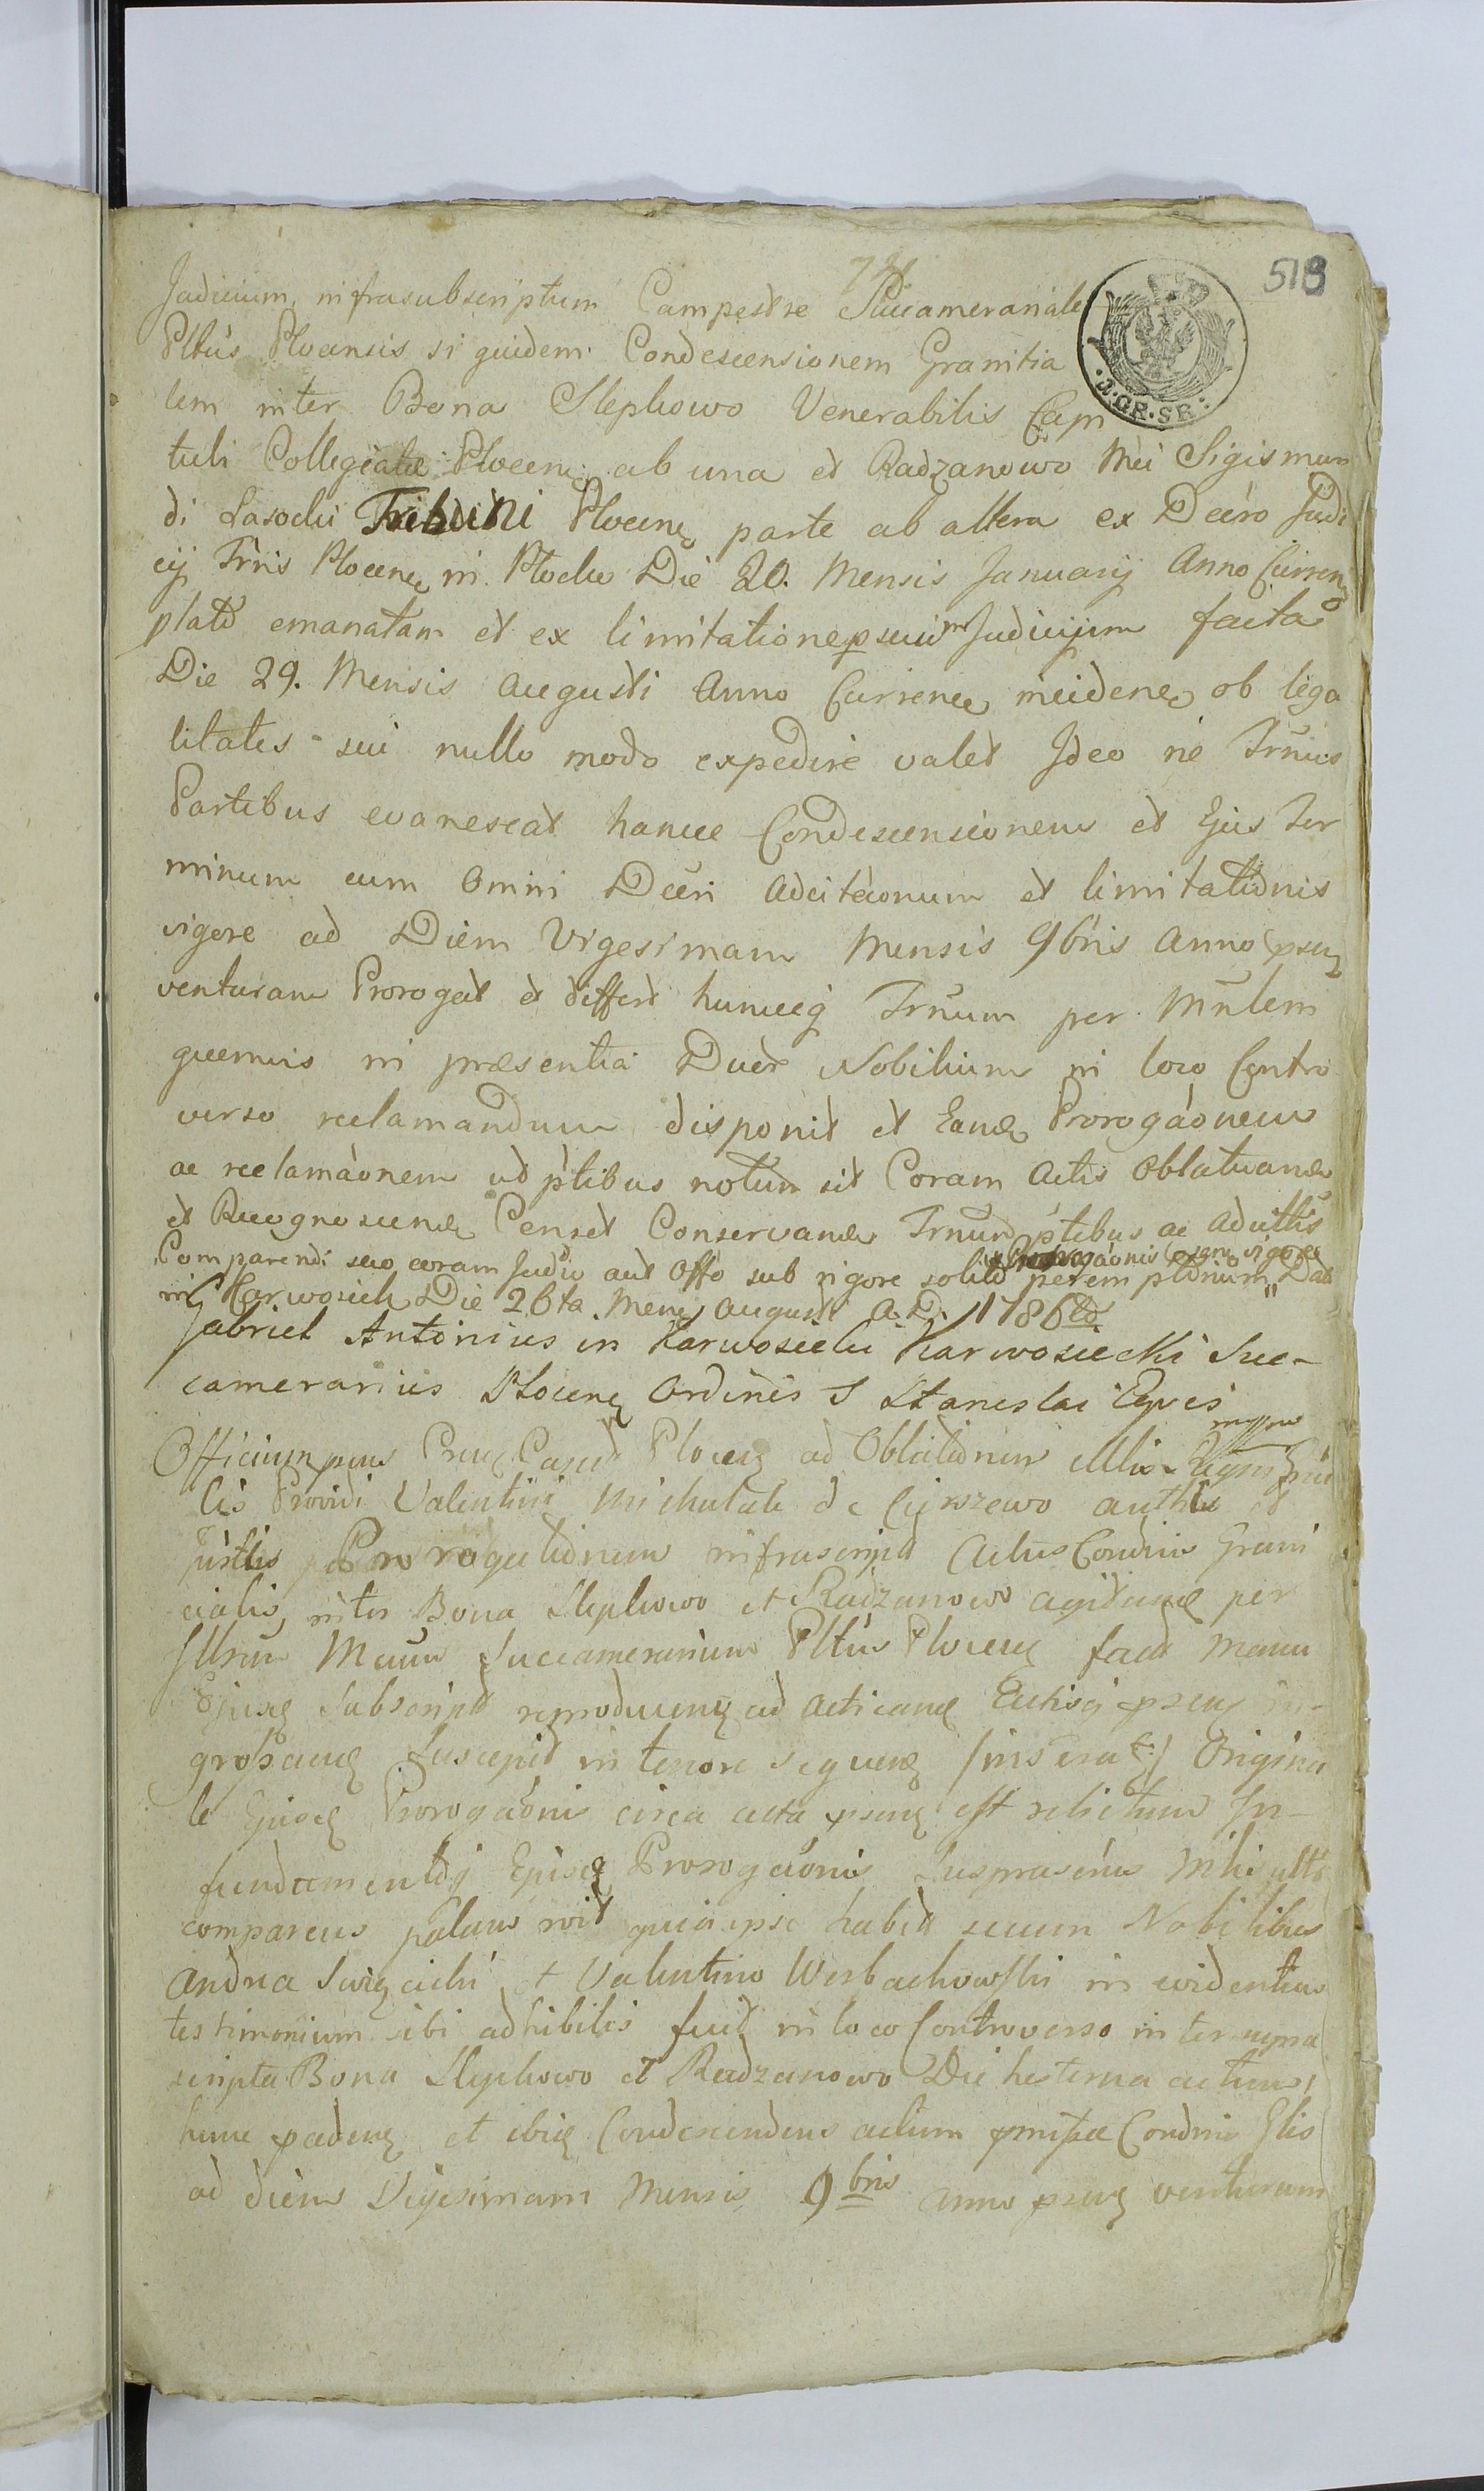 518
Judicium infrasubscriptum Campestre Succamerariale
Pltûs Plocensis si quidem Condescensionem Granitia
lem inter Bona Slepkowo Venerabilis Capi
J. GR. SR.
tuli Collegiatæ Plocen: ab una et Radzanowo Mci Sigismun
di Lasocki Tribuni Plocen parte ab altera ex Decro Judi
cij Trris Plocen in Plocko Die 20. Mensis Januarij Anno Curren
plato emanatam et ex limitatione Judicium facta
Die 29. Mensis Augusti Anno Curren inciden ob lega
litates sui nullo modo expedire valet Ideo ne Trnus
Partibus evanescat hance Condescensionem et Ejus Ter
minum cum Omni Decri Adcitaonum et limitationis
vigore ad Diem Vigesimam Mensis 9bris Anno psen
venturam Prorogat et differt huncq Trnum per Mnlem
quemvis in præsentia Duor Nobilium in loco Contro
verso reclamandum disponit et Eand Prorogaonem
ac reclamaonem ut ptibus notum sit Coram Actis Oblatuand
et Recognoscend Censet Conservand Trnum ptibus ac Adcitis
Comparendi suo coram Judio aut Offo sub rigore solito peremptorium Dat
in Karwosieki Die 26ta Men Augusti A. D. 1786to
Gabriel Antonius in Karwosieki Karwosiecki Suc-
camerarius Plocen Ordinis S Stanislai Eques
mppria
Officium psens Plocen ad Oblationem
lis Providi Valentini Michalak de Ciszewo authen et
juratis Prorogationem infrascript Actus Condnis Grani
cialis inter Bona Slepkowo et Radzanowo agituand per
Illrum Mcum Succamerarium Pltûs Plocen fact Manu
Ejusd Subscript reproducen ad acticand Actisq psen in-
grossand suscepit in tenore sequen /inserat/ Origina
le Ejusd Prorogaonis circa acta psen est relictum In
fundamentoq Ejusd Prorogaonis
comparens palam quia ipse habit secum Nobilibus
Andrea et Valentino in evidentius
testimonium sibi adhibitis fuit in loco Controverso inter supra
scripta Bona Slepkowo et Radzanowo Die hesterna actum
hunc paden et ibid Condescendens actum pmissæ Condnis Glis
ad diem Vigesimam Mensis 9bris anno psen venturum